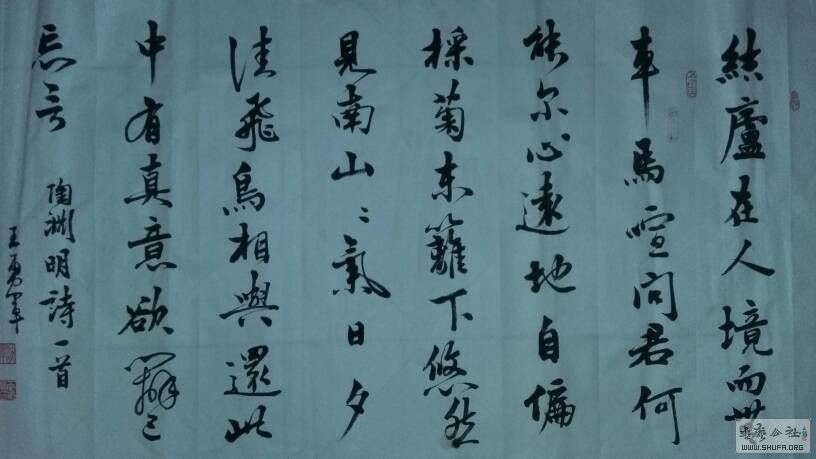 結廬在人境而無
車馬喧問君何
能尔心遠地自偏
採菊東籬下悠然
見南山〻氣日夕
佳飛鳥相與還此
中有真意欲辯已
忘言
陶渊明詩一首
王勇軍
书艺公社
WWW.SHUFA.ORG